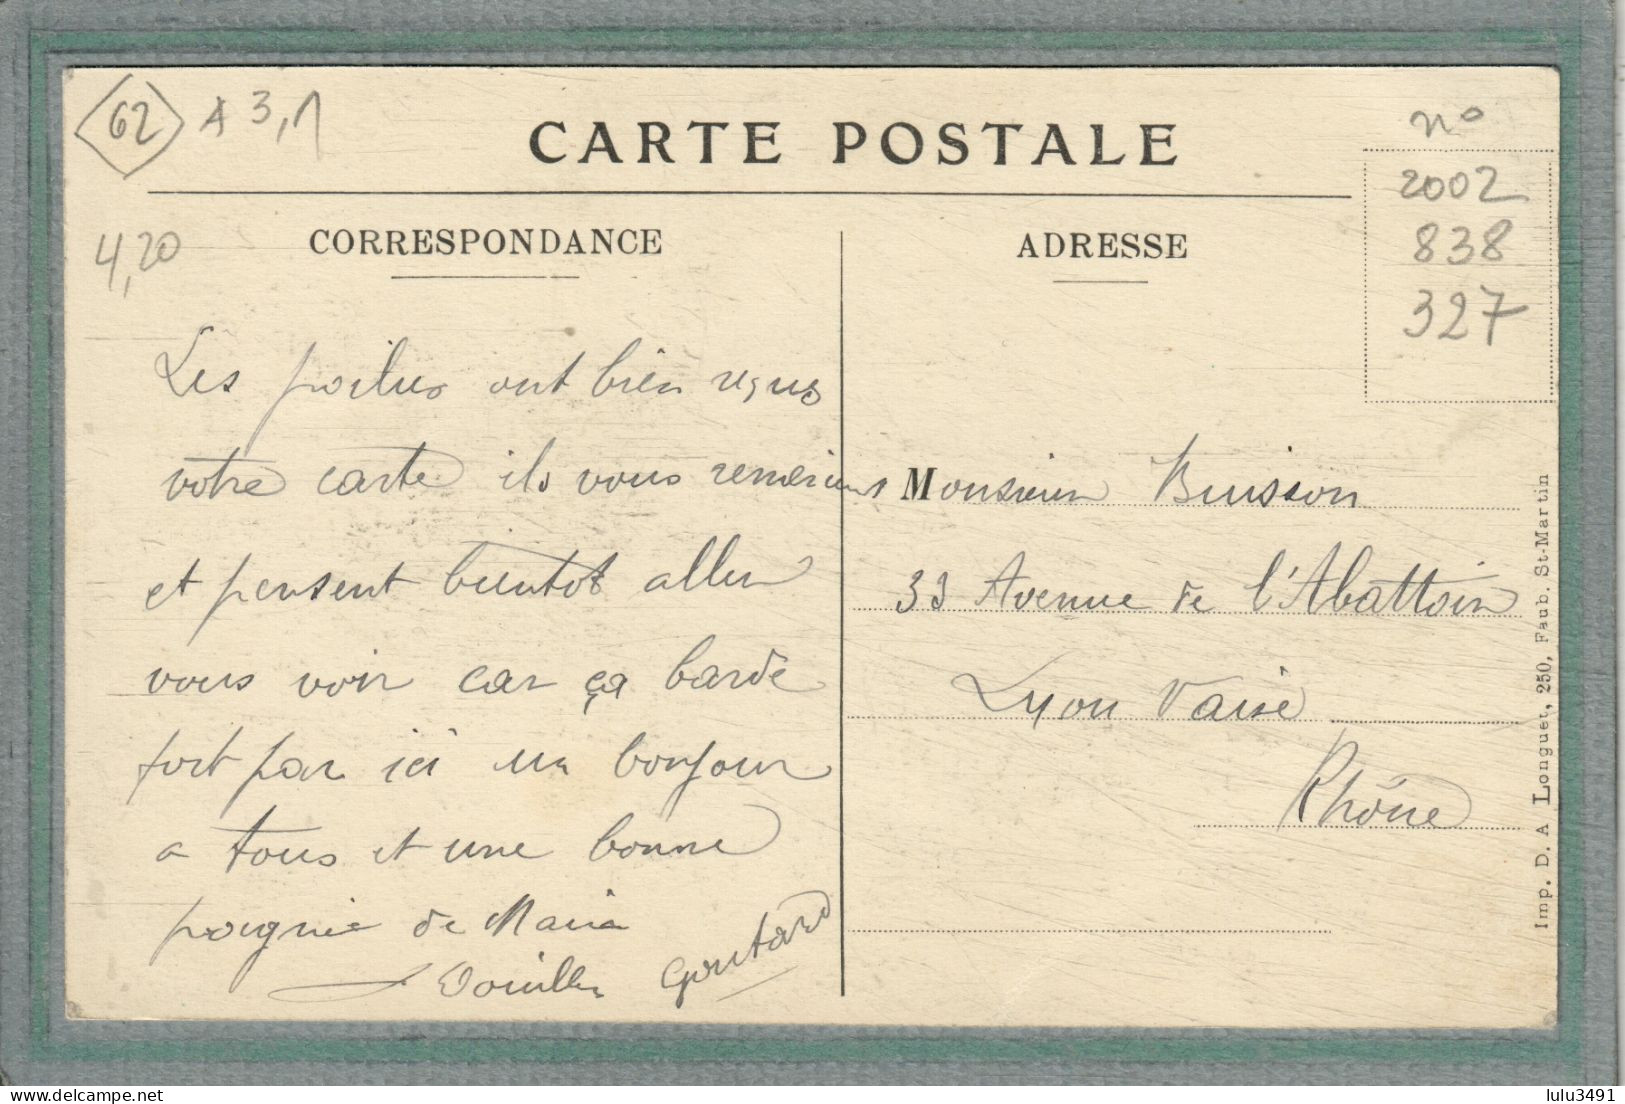 62
A 3,1
CARTE POSTALE
n°
2002
838
327
4,20
CORRESPONDANCE
Les poilus ont bien reçus
votre carte ils vous remercient
et pensent bientot aller
vous voir car ça barde
fort par ici un bonjour
a tous et une bonne
poignie de Main
Goutard
ADRESSE
Monsieur Buisson
33 Avenue de l'Abattoir
Lyon Vaise
Rhône
Imp. D. A Longuet, 250, Faub. St-Martin
delcampe.net
lulu3491